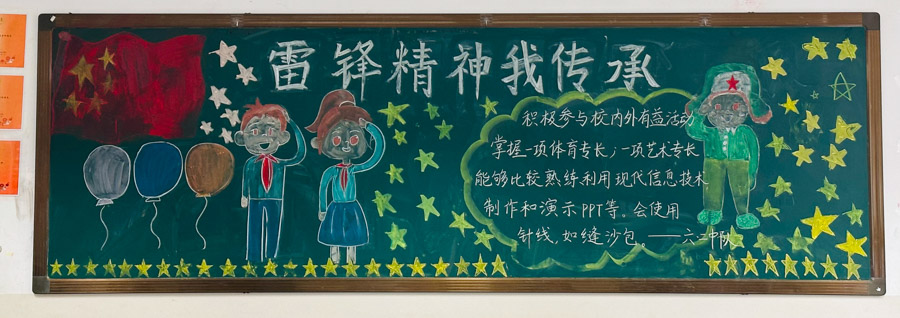 雷锋精神我传承
积极参与校内外有益活动
掌握一项体育专长,一项艺术专长
能够比较熟练利用现代信息技术
制作和演示PPT等。会使用
针线,如缝沙包。——六二中队